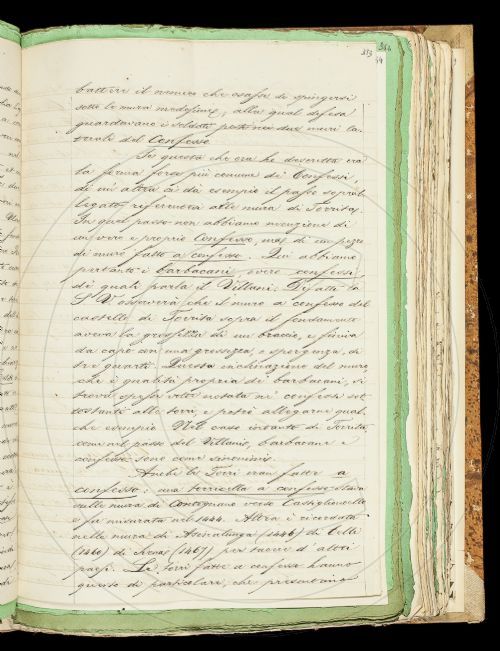 353 354
59
battere il nemico che osasse di spingersi
sotto le mura medesime, alla qual difesa
guardavano i soldati posti nei due muri la-
terali del Confesso.
Se questa che ora ho descritta era
la forma forse più comune de' Confessi,
di un'altra ci dà esempio il passo sopral-
legato, riferentesi alle mura di Torrita.
In quel passo non abbiamo menzione di
un vero e proprio Confesso, ma di un pezzo
di muro fatto a confesso. Qui abbiamo
pertanto i barbacani, overo confessi
di quali parla il Villani. Difatti la
S. V. osserverà che il muro a confesso del
castello di Torrita sopra il fondamento
aveva la grossezza di un braccio, e finiva
da capo con una grossezza, e sporgenza, di
tre quarti. Questa inclinazione del muro
che è qualità propria di barbacani, si
trova spesse volte notata ne' confessi sot-
tostanti alle torri, e potrei allegarne qual-
che esempio. Nel caso intanto di Torrita,
come nel passo del Villani, barbacane e
confesso sono come sinonimi.
Anche le Torri eran fatte a
confesso: una torricella a confesso stava
sulle mura di Contignano verso Castiglioncello
e fu misurata nel 1444. Altra è ricordata
nelle mura di Asinalunga (1446) di Celle
(1460) di (1467) per tacere d'altri
paesi. Le torri fatte a confesso hanno
questo di particolare, che presentano